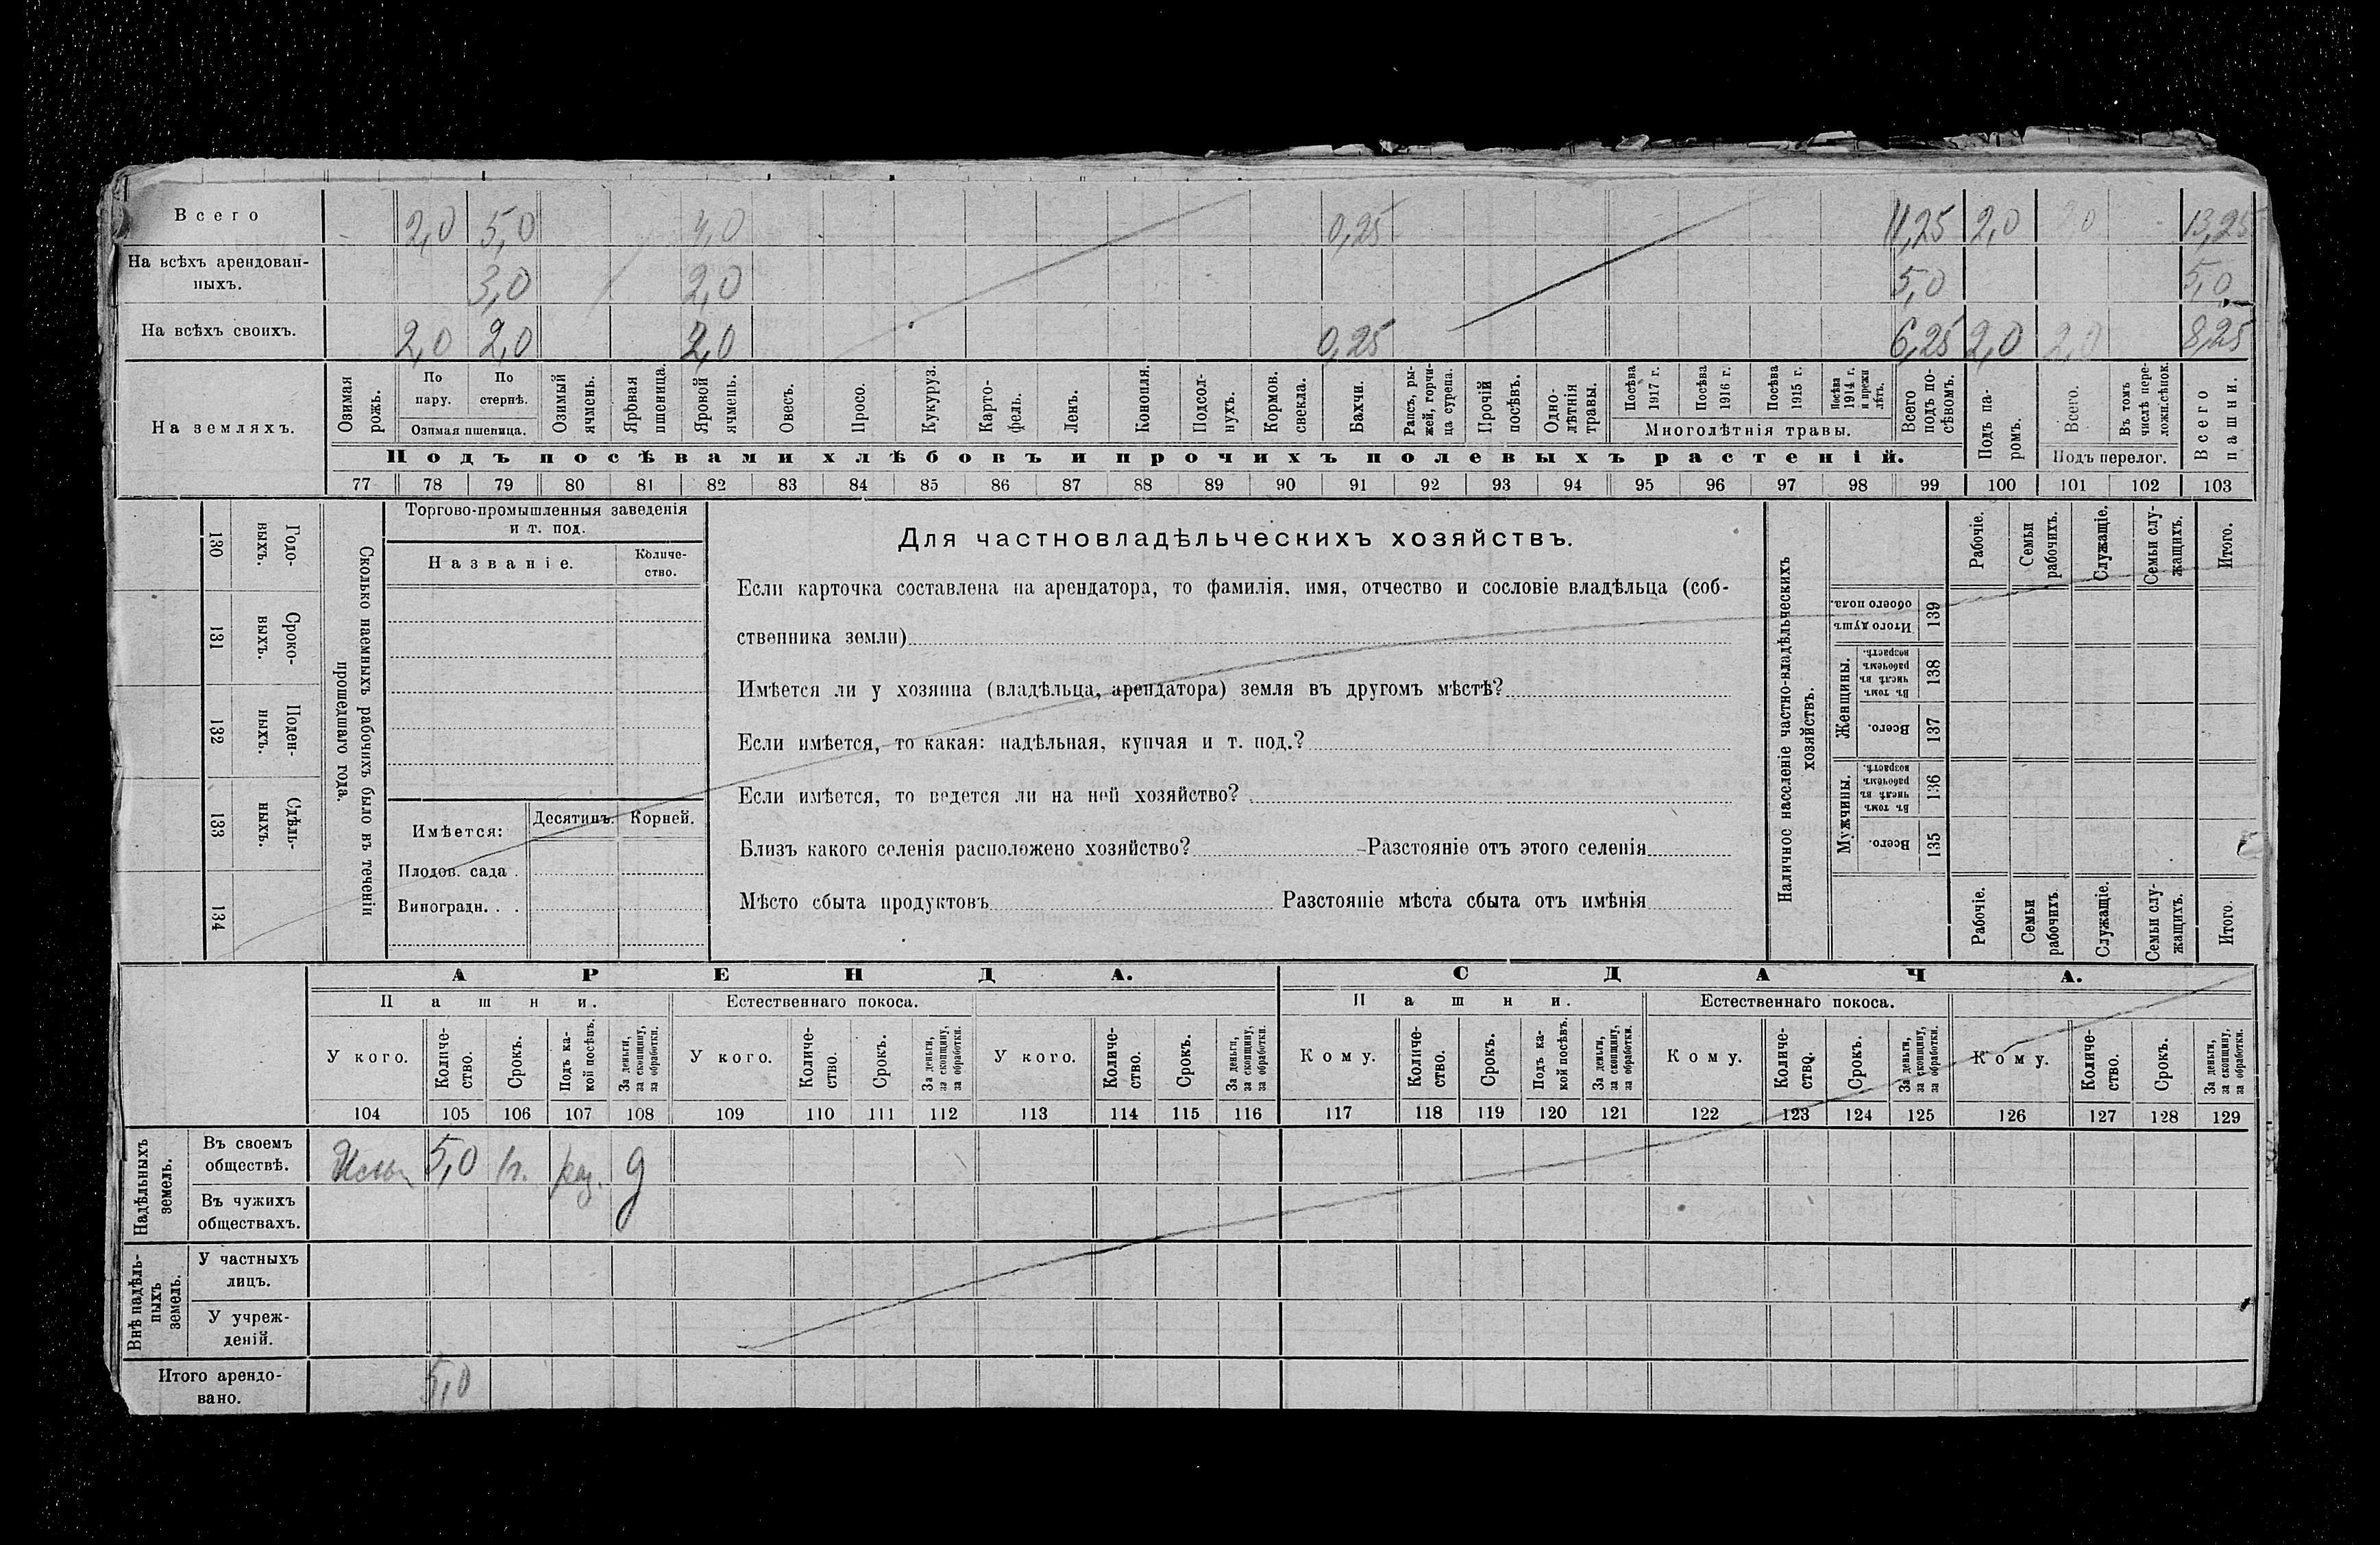 Всего 2,0 5,0 4,0 0,25 11,25 2,0 2,0 13,25
На всѣхъ арендован-
ныхъ. 3,0 2,0 5,0 5,0
На всѣхъ своихъ. 2,0 2,0 2,0 0,25 6,25 2,0 2,0 8,25
На земляхъ.
Озимая рожь.
По пару.
По стернѣ.
Озимая пшеница.
Озимый ячмень.
Яровая пшеница.
Яровой ячмень.
Овесъ.
Просо.
Кукуруз.
Карто-
фель.
Ленъ.
Конопля.
Подсол-
нухъ.
Кормов.
свекла.
Бахчи.
Рапсъ, ры-
жей, горчи-
ца сурепа.
Прочій
посѣвъ.
Одно-
лѣтнія
травы.
Посѣва
1917 г.
Посѣва
1916 г.
Посѣва
1915 г.
Посѣва
1914 г.
и прежн
лѣтъ.
Многолѣтнія травы.
Всего
подъ по-
сѣвомъ.
Подъ па-
ромъ.
Всего.
Въ томъ
числѣ пере-
ложн.сѣнок.
Подъ перелог.
Всего
пашни.
Подъ посѣвами хлѣбовъ и прочихъ полевыхъ растеній.
77 78 79 80 81 82 83 84 85 86 87 88 89 90 91 92 93 94 95 96 97 98 99 100 101 102 103
130 Годо-
выхъ.
131 Сроко-
выхъ.
132 Поден-
ныхъ.
133 Сдѣль-
ныхъ.
134
Сколько наемныхъ рабочихъ было въ теченіи
прошедшаго года.
Торгово-промышленныя заведенія
и т. под.
Названіе.
Количе-
ство.
Имѣется:
Десятинъ.
Корней.
Плодов. сада .
Виноградн. . .
Для частновладѣльческихъ хозяйствъ.
Если карточка составлена на арендатора, то фамилія, имя, отчество и сословіе владѣльца (соб-
ственника земли)
Имѣется ли у хозяина (владѣльца, арендатора) земля въ другомъ мѣстѣ?
Если имѣется, то какая: надѣльная, купчая и т. под.?
Если имѣется, то ведется ли на ней хозяйство?
Близъ какого селенія расположено хозяйство? Разстояніе отъ этого селенія
Мѣсто сбыта продуктовъ Разстояніе мѣста сбыта отъ имѣнія
Наличное населеніе частно-владѣльческихъ
хозяйствъ.
Рабочіе.
Семьи
рабочихъ.
Служащіе.
Семьи слу-
жащихъ.
Итого.
Итого душъ
обоего пола.
139
Женщины.
Въ томъ
числѣ въ
рабочемъ
возрастѣ.
138
Всего.
137
Мужчины.
Въ томъ
числѣ въ
рабочемъ
возрастѣ.
136
Всего.
135
Рабочіе.
Семьи
рабочихъ
Служащіе.
Семьи слу-
жащихъ.
Итого.
АРЕНДА.
СДАЧА.
Пашни.
Естественнаго покоса.
Пашни.
Естественнаго покоса.
У кого.
Количе-
ство.
Срокъ.
Подъ ка-
кой посѣвъ.
За деньги,
за скопщину,
за обработки.
У кого.
Количе-
ство.
Срокъ.
За деньги,
за скопщину,
за обработки.
У кого.
Количе-
ство.
Срокъ.
За деньги,
за скопщину,
за обработки.
Кому.
Количе-
ство.
Срокъ.
Подъ ка-
кой посѣвъ.
За деньги,
за скопщину,
за обработки.
Кому.
Количе-
ство.
Срокъ.
За деньги,
за скопщину,
за обработки.
Кому.
Количе-
ство.
Срокъ.
За деньги,
за скопщину,
за обработки.
104 105 106 107 108 109 110 111 112 113 114 115 116 117 118 119 120 121 122 123 124 125 126 127 128 129
Надѣльныхъ
земель.
Въ своемъ
обществѣ. 5,0 1г. раз. д
Въ чужихъ
обществахъ.
Внѣ надѣль-
ныхъ
земель.
У частныхъ
лицъ.
У учреж-
деній.
Итого арендо-
вано. 5,0